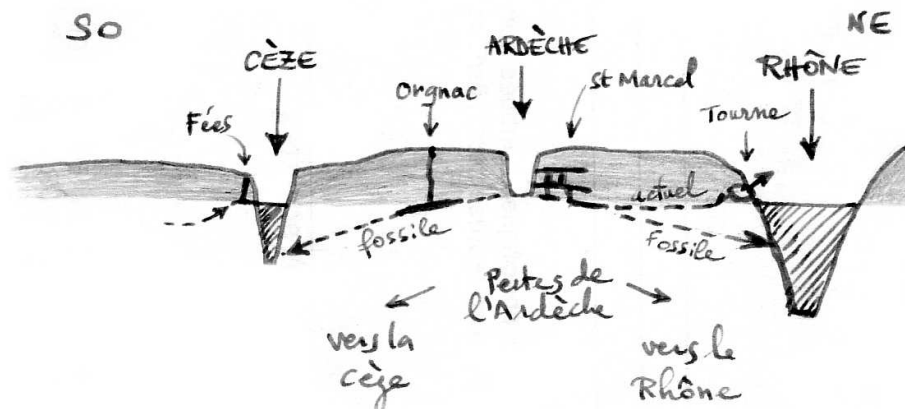 SO
NE
CÈZE
ARDÈCHE
RHÔNE
Orgnac
St Marcel
Tourne
Fées
actuel
fossile
Fossile
Pertes de
l'Ardèche
vers la
Cèze
vers le
Rhône